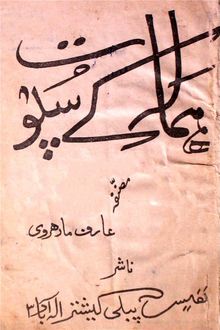 ہمالہ کے سپوت
مصنفہ
عارف مارہروی
ناشر
نفیس پبلی کیشنز الہ آباد ۳